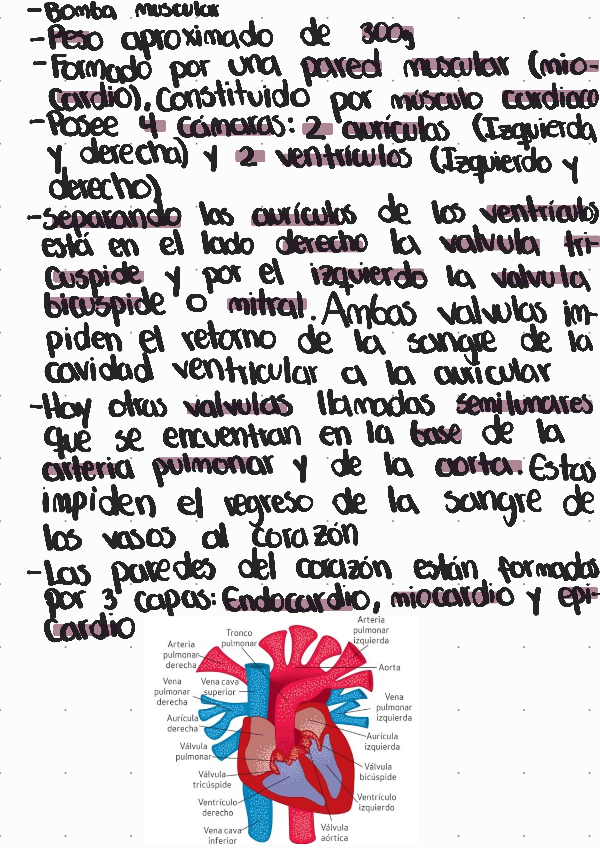 -Bomba muscular
-Peso aproximado de 300g
-Formado por una pared muscular (mio-
cardio), Constituido por músculo cardiaco
-Posee 4 cámaras: 2 aurículas (Izquierda
y derecha) y 2 ventrículos (Izquierdo y
derecho)
-separando las aurículas de los ventrículos
está en el lado derecho la valvula tri-
cuspide y por el izquierdo la valvula
bicuspide o mitral. Ambas valvulas im-
piden el retorno de la sangre de la
cavidad ventricular a la auricular
-Hay otras valvulas llamadas semilunares
que se encuentran en la base de la
arteria pulmonar y de la aorta. Estas
impiden el regreso de la sangre de
los vasos al corazón
-Las paredes del corazón están formadas
por 3 capas: Endocardio, miocardio y epi-
cardio
Arteria
pulmonar
derecha
Tronco
pulmonar
Arteria
pulmonar
izquierda
Aorta
Vena
pulmonar
derecha
Vena cava
superior
Vena
pulmonar
izquierda
Aurícula
derecha
Aurícula
izquierda
Válvula
pulmonar
Válvula
bicúspide
Válvula
tricúspide
Ventrículo
derecho
Ventrículo
izquierdo
Vena cava
inferior
Válvula
aórtica